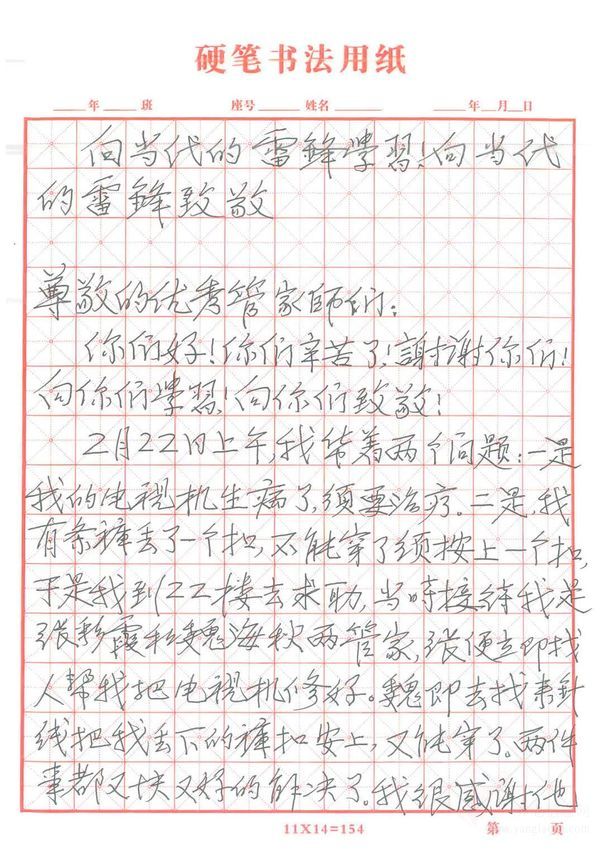 硬笔书法用纸
年 班 座号 姓名 年 月 日
向当代的雷鋒學習！向当代
的雷鋒致敬
尊敬的优秀管家师们：
你们好！你们辛苦了！謝謝你们！
向你们學習！向你们致敬！
2月22日上午，我带着两个问题：一是
我的电視机生病了，须要治疗。二是，我
有条褲丢了一个扣，不能穿了须按上一个扣，
于是我到122楼去求助，当時接待我是
張彩霞和魏海秋两管家，張便立即找
人幫我把电視机修好。魏即去找来針
线把我丢下的褲扣安上，又能穿了。两件
事都又快又好的解决了。我很感謝他
11X14=154 第 页